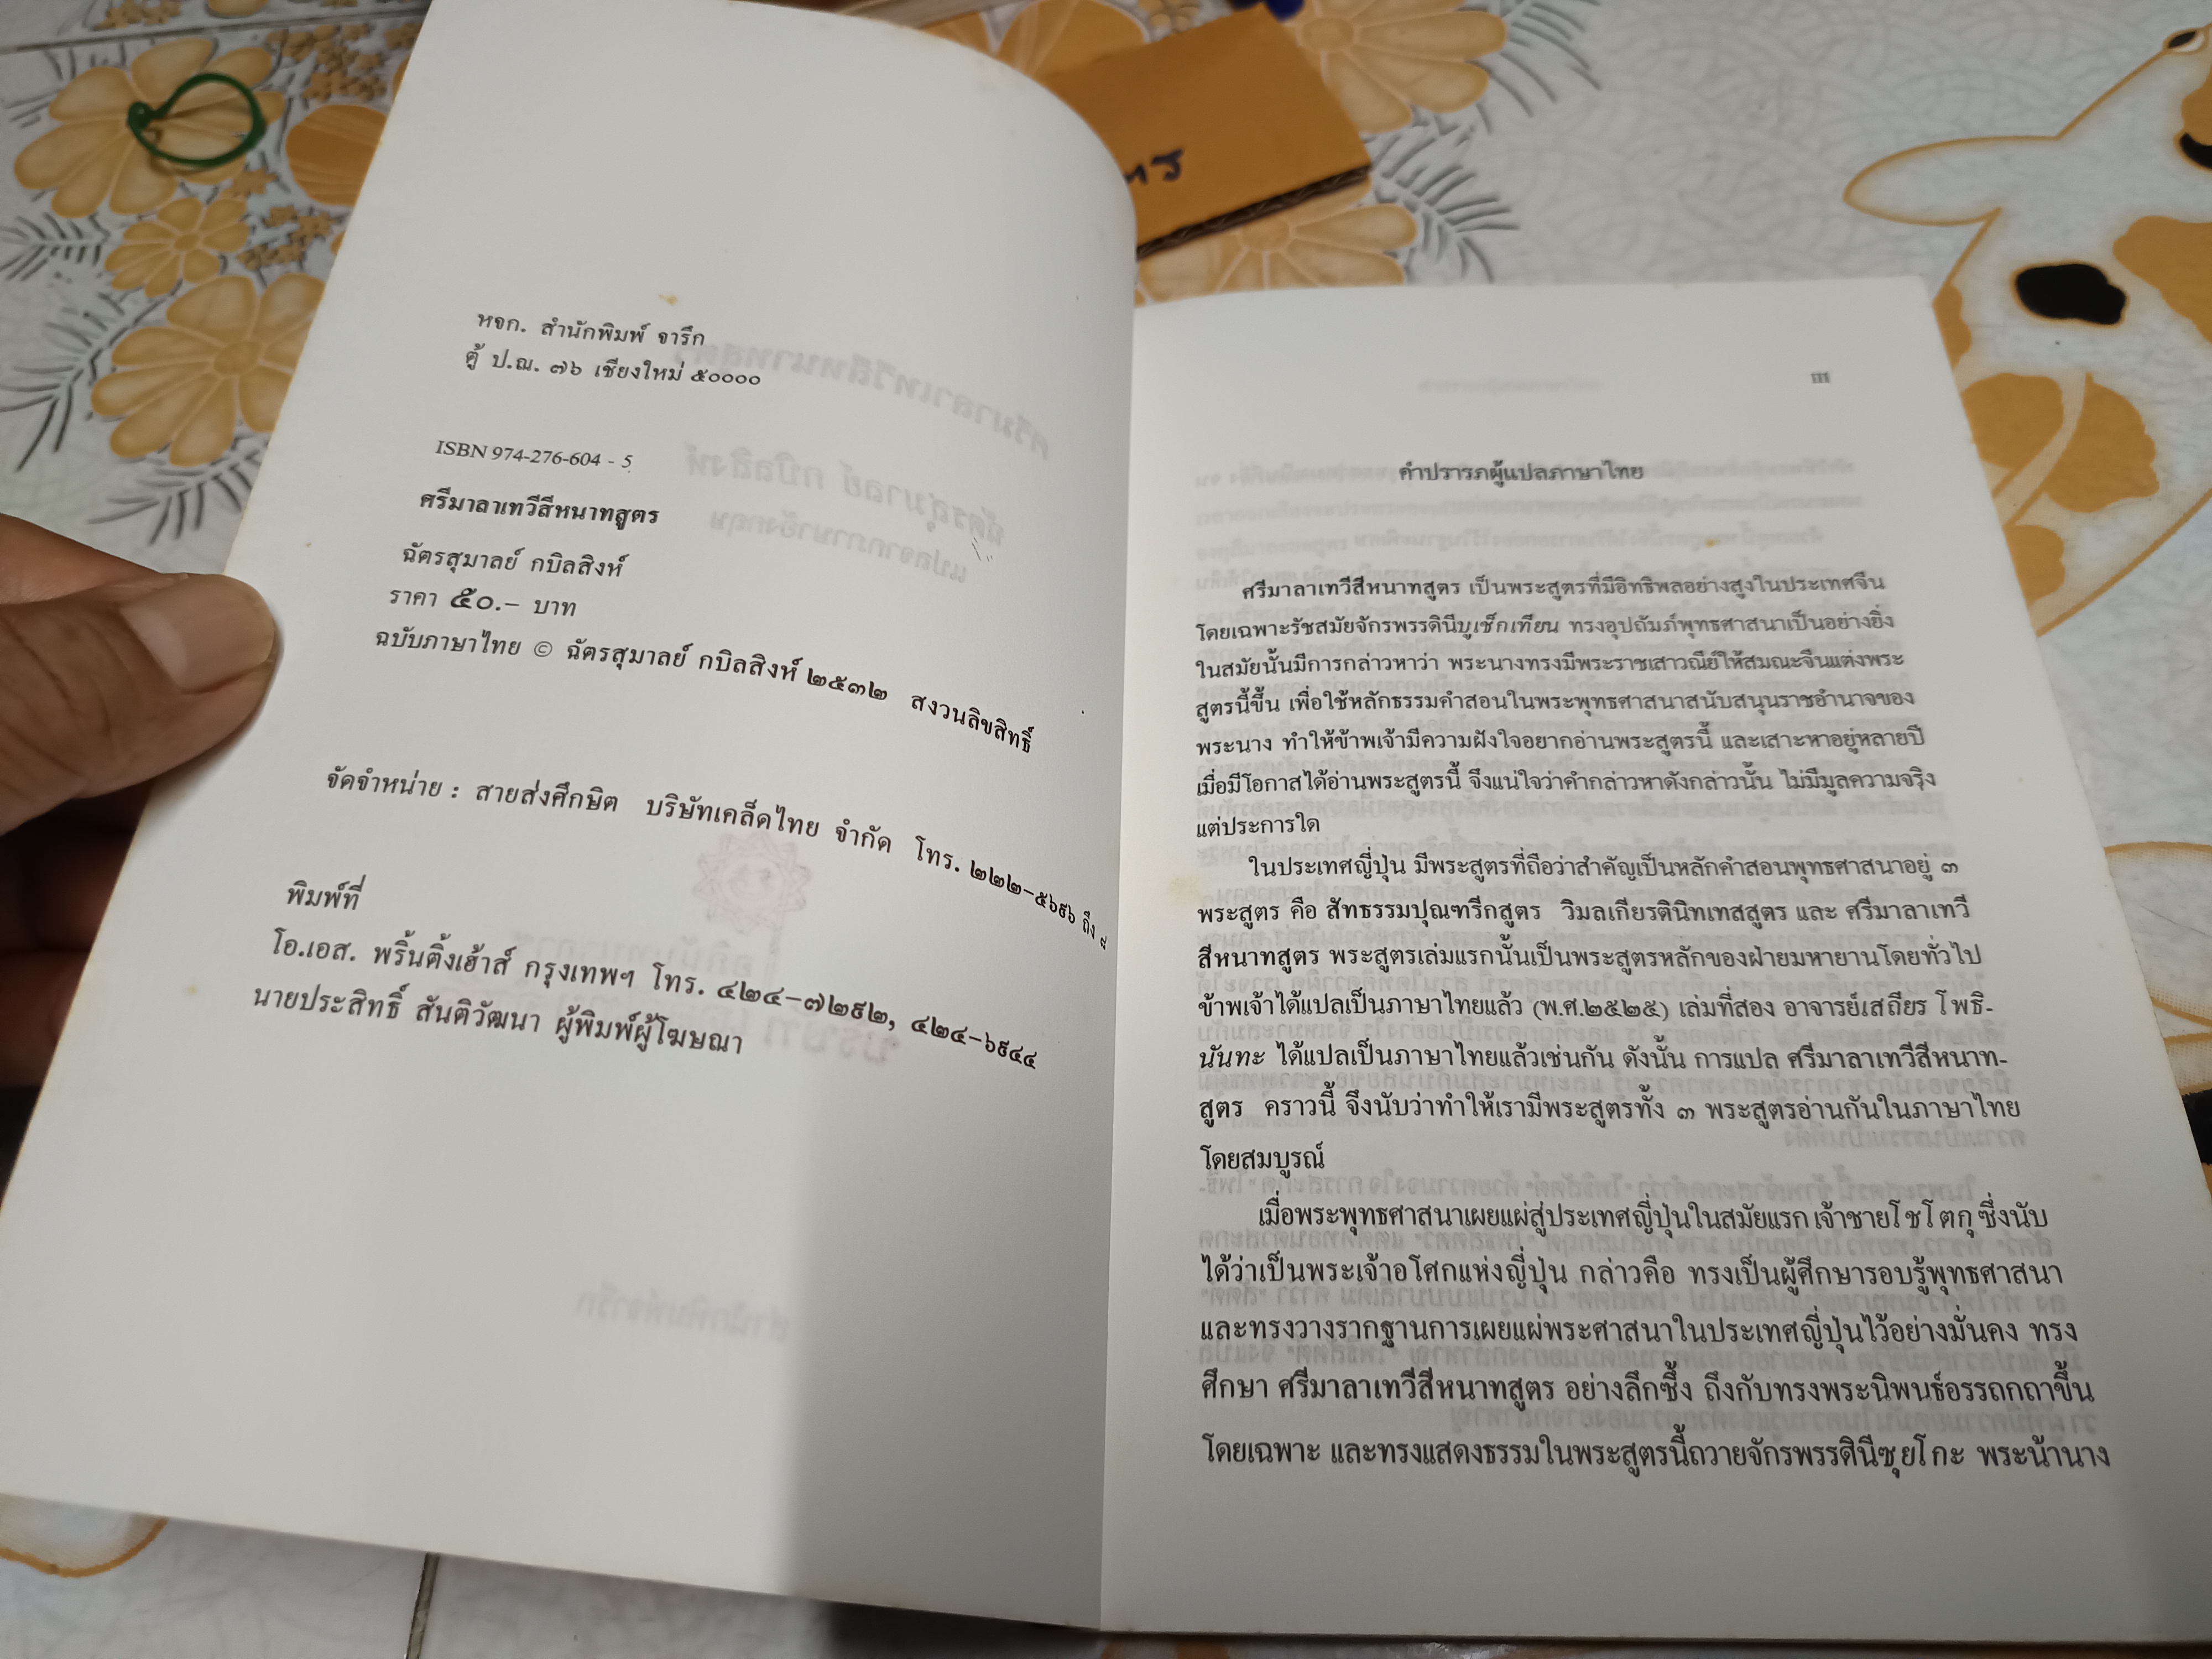 หจก. สำนักพิมพ์ จารึก
ตู้ ป.ณ. ๗๖ เชียงใหม่ ๕๐๐๐๐
ISBN 974-276-604 - 5
ศรีมาลาเทวีสีหนาทสูตร
ฉัตรสุมาลย์ กบิลสิงห์
ราคา ๕๐.– บาท
ฉบับภาษาไทย © ฉัตรสุมาลย์ กบิลสิงห์ ๒๕๓๒ สงวนลิขสิทธิ์
จัดจำหน่าย : สายส่งศึกษิต บริษัทเคล็ดไทย จำกัด โทร. ๒๒๒–๕๖๙๖ ถึง ๙
พิมพ์ที่
โอ.เอส. พริ้นติ้งเฮ้าส์ กรุงเทพฯ โทร. ๔๒๔–๗๒๙๒, ๔๒๔–๖๙๔๔
นายประสิทธิ์ สันติวัฒนา ผู้พิมพ์ผู้โฆษณา
III
คำปรารภผู้แปลภาษาไทย
ศรีมาลาเทวีสีหนาทสูตร เป็นพระสูตรที่มีอิทธิพลอย่างสูงในประเทศจีน
โดยเฉพาะรัชสมัยจักรพรรดินีบูเช็กเทียน ทรงอุปถัมภ์พุทธศาสนาเป็นอย่างยิ่ง
ในสมัยนั้นมีการกล่าวหาว่า พระนางทรงมีพระราชเสาวณีย์ให้สมณะจีนแต่งพระ
สูตรนี้ขึ้น เพื่อใช้หลักธรรมคำสอนในพระพุทธศาสนาสนับสนุนราชอำนาจของ
พระนาง ทำให้ข้าพเจ้ามีความฝังใจอยากอ่านพระสูตรนี้ และเสาะหาอยู่หลายปี
เมื่อมีโอกาสได้อ่านพระสูตรนี้ จึงแน่ใจว่าคำกล่าวหาดังกล่าวนั้น ไม่มีมูลความจริง
แต่ประการใด
ในประเทศญี่ปุ่น มีพระสูตรที่ถือว่าสำคัญเป็นหลักคำสอนพุทธศาสนาอยู่ ๓
พระสูตร คือ สัทธรรมปุณฑรีกสูตร วิมลเกียรตินิทเทสสูตร และ ศรีมาลาเทวี
สีหนาทสูตร พระสูตรเล่มแรกนั้นเป็นพระสูตรหลักของฝ่ายมหายานโดยทั่วไป
ข้าพเจ้าได้แปลเป็นภาษาไทยแล้ว (พ.ศ.๒๕๒๕) เล่มที่สอง อาจารย์เสถียร โพธิ-
นันทะ ได้แปลเป็นภาษาไทยแล้วเช่นกัน ดังนั้น การแปล ศรีมาลาเทวีสีหนาท-
สูตร คราวนี้ จึงนับว่าทำให้เรามีพระสูตรทั้ง ๓ พระสูตรอ่านกันในภาษาไทย
โดยสมบูรณ์
เมื่อพระพุทธศาสนาเผยแผ่สู่ประเทศญี่ปุ่นในสมัยแรก เจ้าชายโชโตกุ ซึ่งนับ
ได้ว่าเป็นพระเจ้าอโศกแห่งญี่ปุ่น กล่าวคือ ทรงเป็นผู้ศึกษารอบรู้พุทธศาสนา
และทรงวางรากฐานการเผยแผ่พระศาสนาในประเทศญี่ปุ่นไว้อย่างมั่นคง ทรง
ศึกษา ศรีมาลาเทวีสีหนาทสูตร อย่างลึกซึ้ง ถึงกับทรงพระนิพนธ์อรรถกถาขึ้น
โดยเฉพาะ และทรงแสดงธรรมในพระสูตรนี้ถวายจักรพรรดินีซุยโกะ พระน้านาง